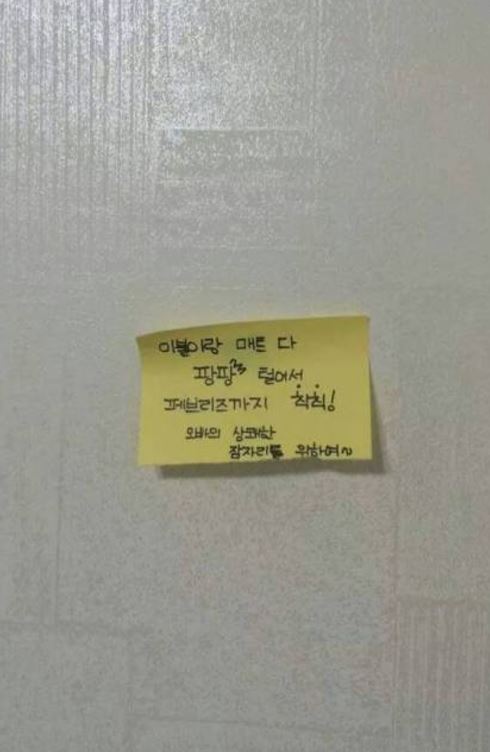 이불이랑 매트 다
팡팡 털어서
페브리즈까지 착착!
오빠의 상쾌한
잠자리를 위하여~